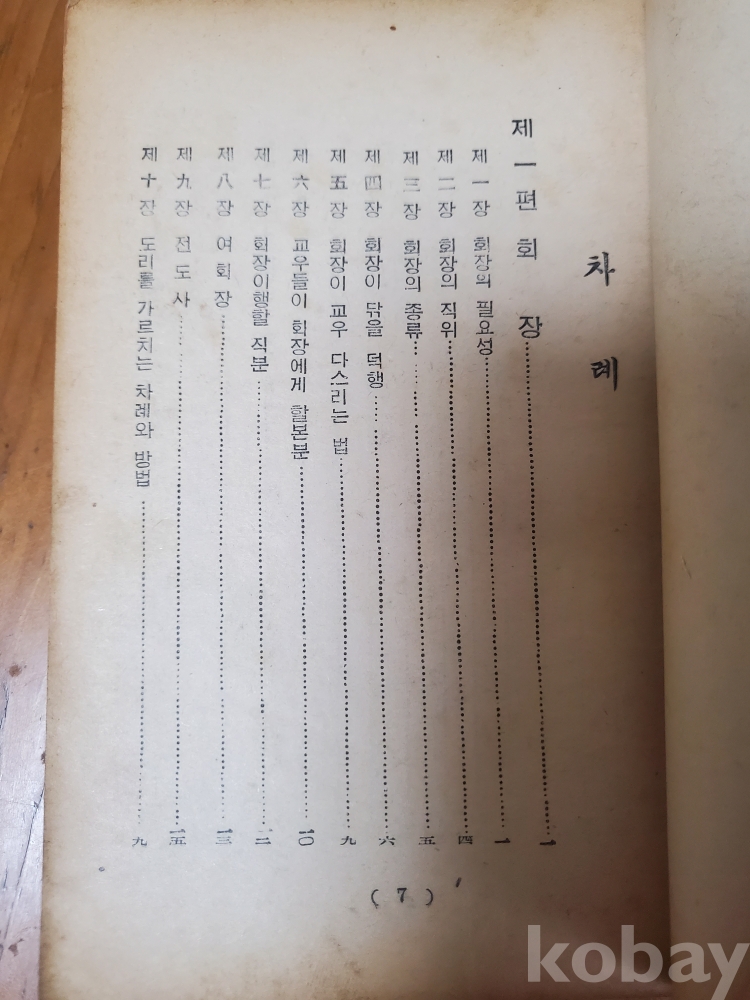 차례
제一편 회장 一
제一장 회장의 필요성 一
제二장 회장의 직위 四
제三장 회장의 종류 五
제四장 회장이 닦을 덕행 六
제五장 회장이 교우 다스리는 법 九
제六장 교우들이 회장에게 할본분 一〇
제七장 회장이행할 직분 一二
제八장 여회장 一三
제九장 전도사 一五
제十장 도리를 가르치는 차례와 방법 九
( 7 )
kobay